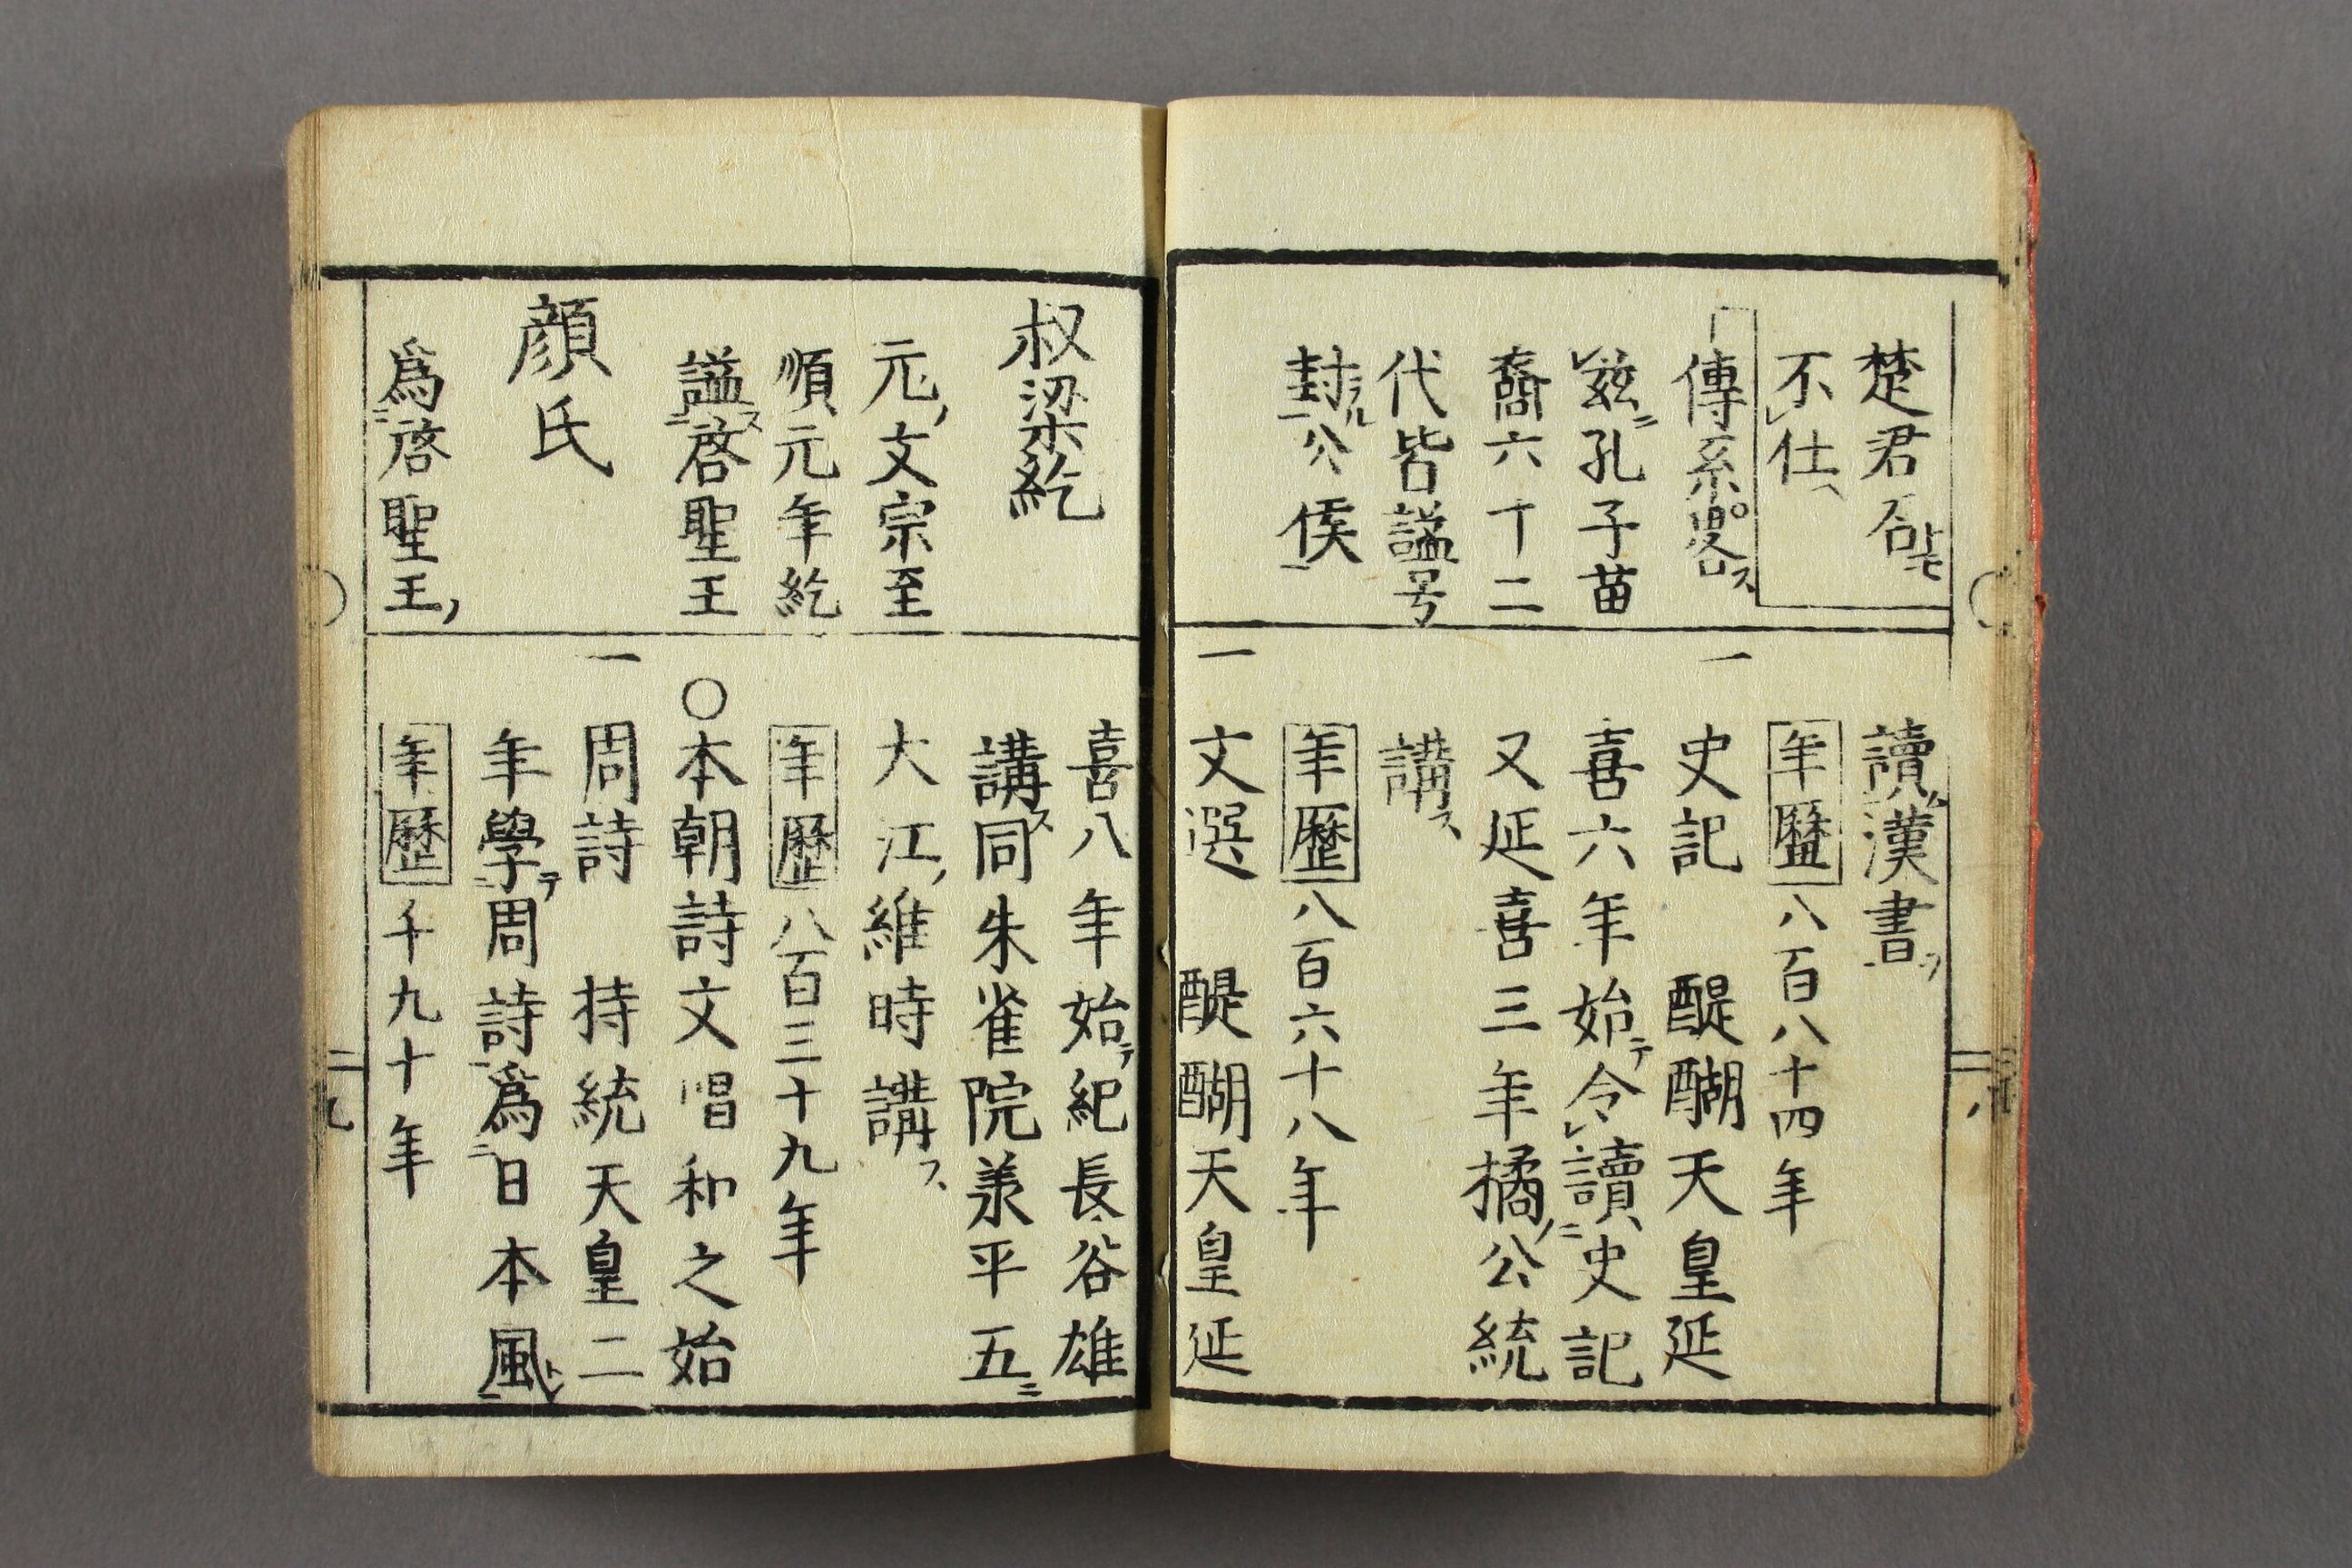 楚君召トモ
不レ仕、
傳系畧ス、
茲ニ孔子苗
裔六十二
代皆謚号
封ラル公侯
讀漢書ヲ
年暦八百八十四年
一史記 醍醐天皇延
喜六年始テ令レ讀史記
又延喜三年橘ノ公統
講ス、
年歴八百六十八年
一文選 醍醐天皇延
叔梁紇
元ノ文宗至
順元年紇
謚ス啓聖王
顔氏
爲啓聖王ノ
喜八年始テ紀長谷雄
講ス同朱雀院承平五ニ
大江ノ維時講ス、
年歴八百三十九年
〇本朝詩文唱和之始
一周詩 持統天皇二
年學テ周詩爲日本風ト
年歴千九十年
二九